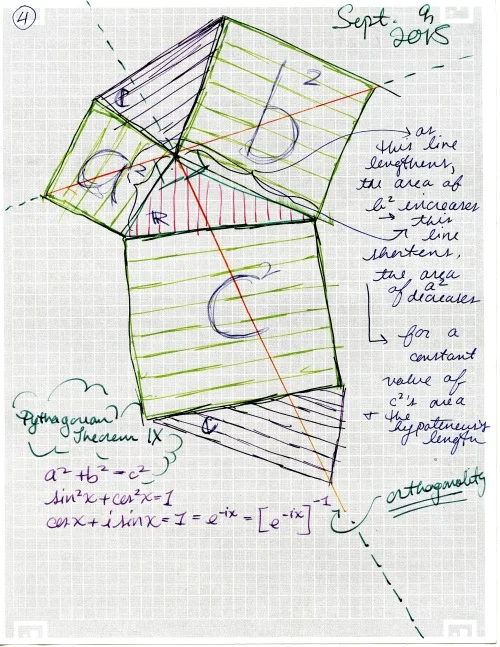 4
Sept. 9,
2015
C
b²
a²
R
c²
C
as
this line
lengthens,
the area of
b² increases
→ this
line
shortens,
the area
of a²
decreases
for a
constant
value of
c²'s area
+ the
hypoteneris
length
orthogonality
Pythagorean
Theorem IX
a² + b² = c²
sin²x + cos²x = 1
cosx + i sinx = 1 = e^-ix = [e^-ix]^-1